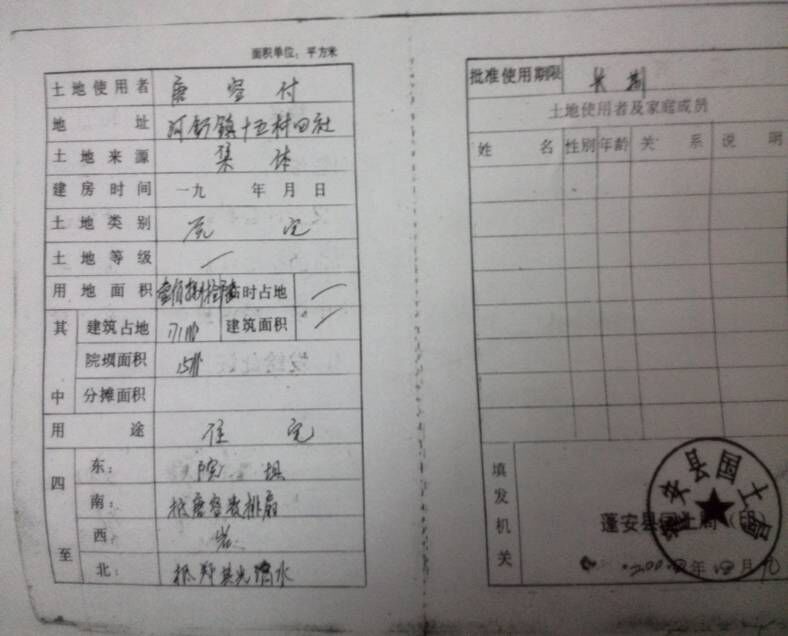 面积单位：平方米
土地使用者 唐容付
地址 河舒镇十五村四社
土地来源 集体
建房时间 一九 年 月 日
土地类别 宅
土地等级
用地面积 临时占地
其中 建筑占地 建筑面积
院坝面积
分摊面积
用途 住宅
四至 东： 院坝
南： 抵唐容数排扇
西： 岩
北： 抵郑其光滴水
批准使用期限 长期
土地使用者及家庭成员
姓名 性别 年龄 关系 说明
填发机关
蓬安县国土局（印）
年 月